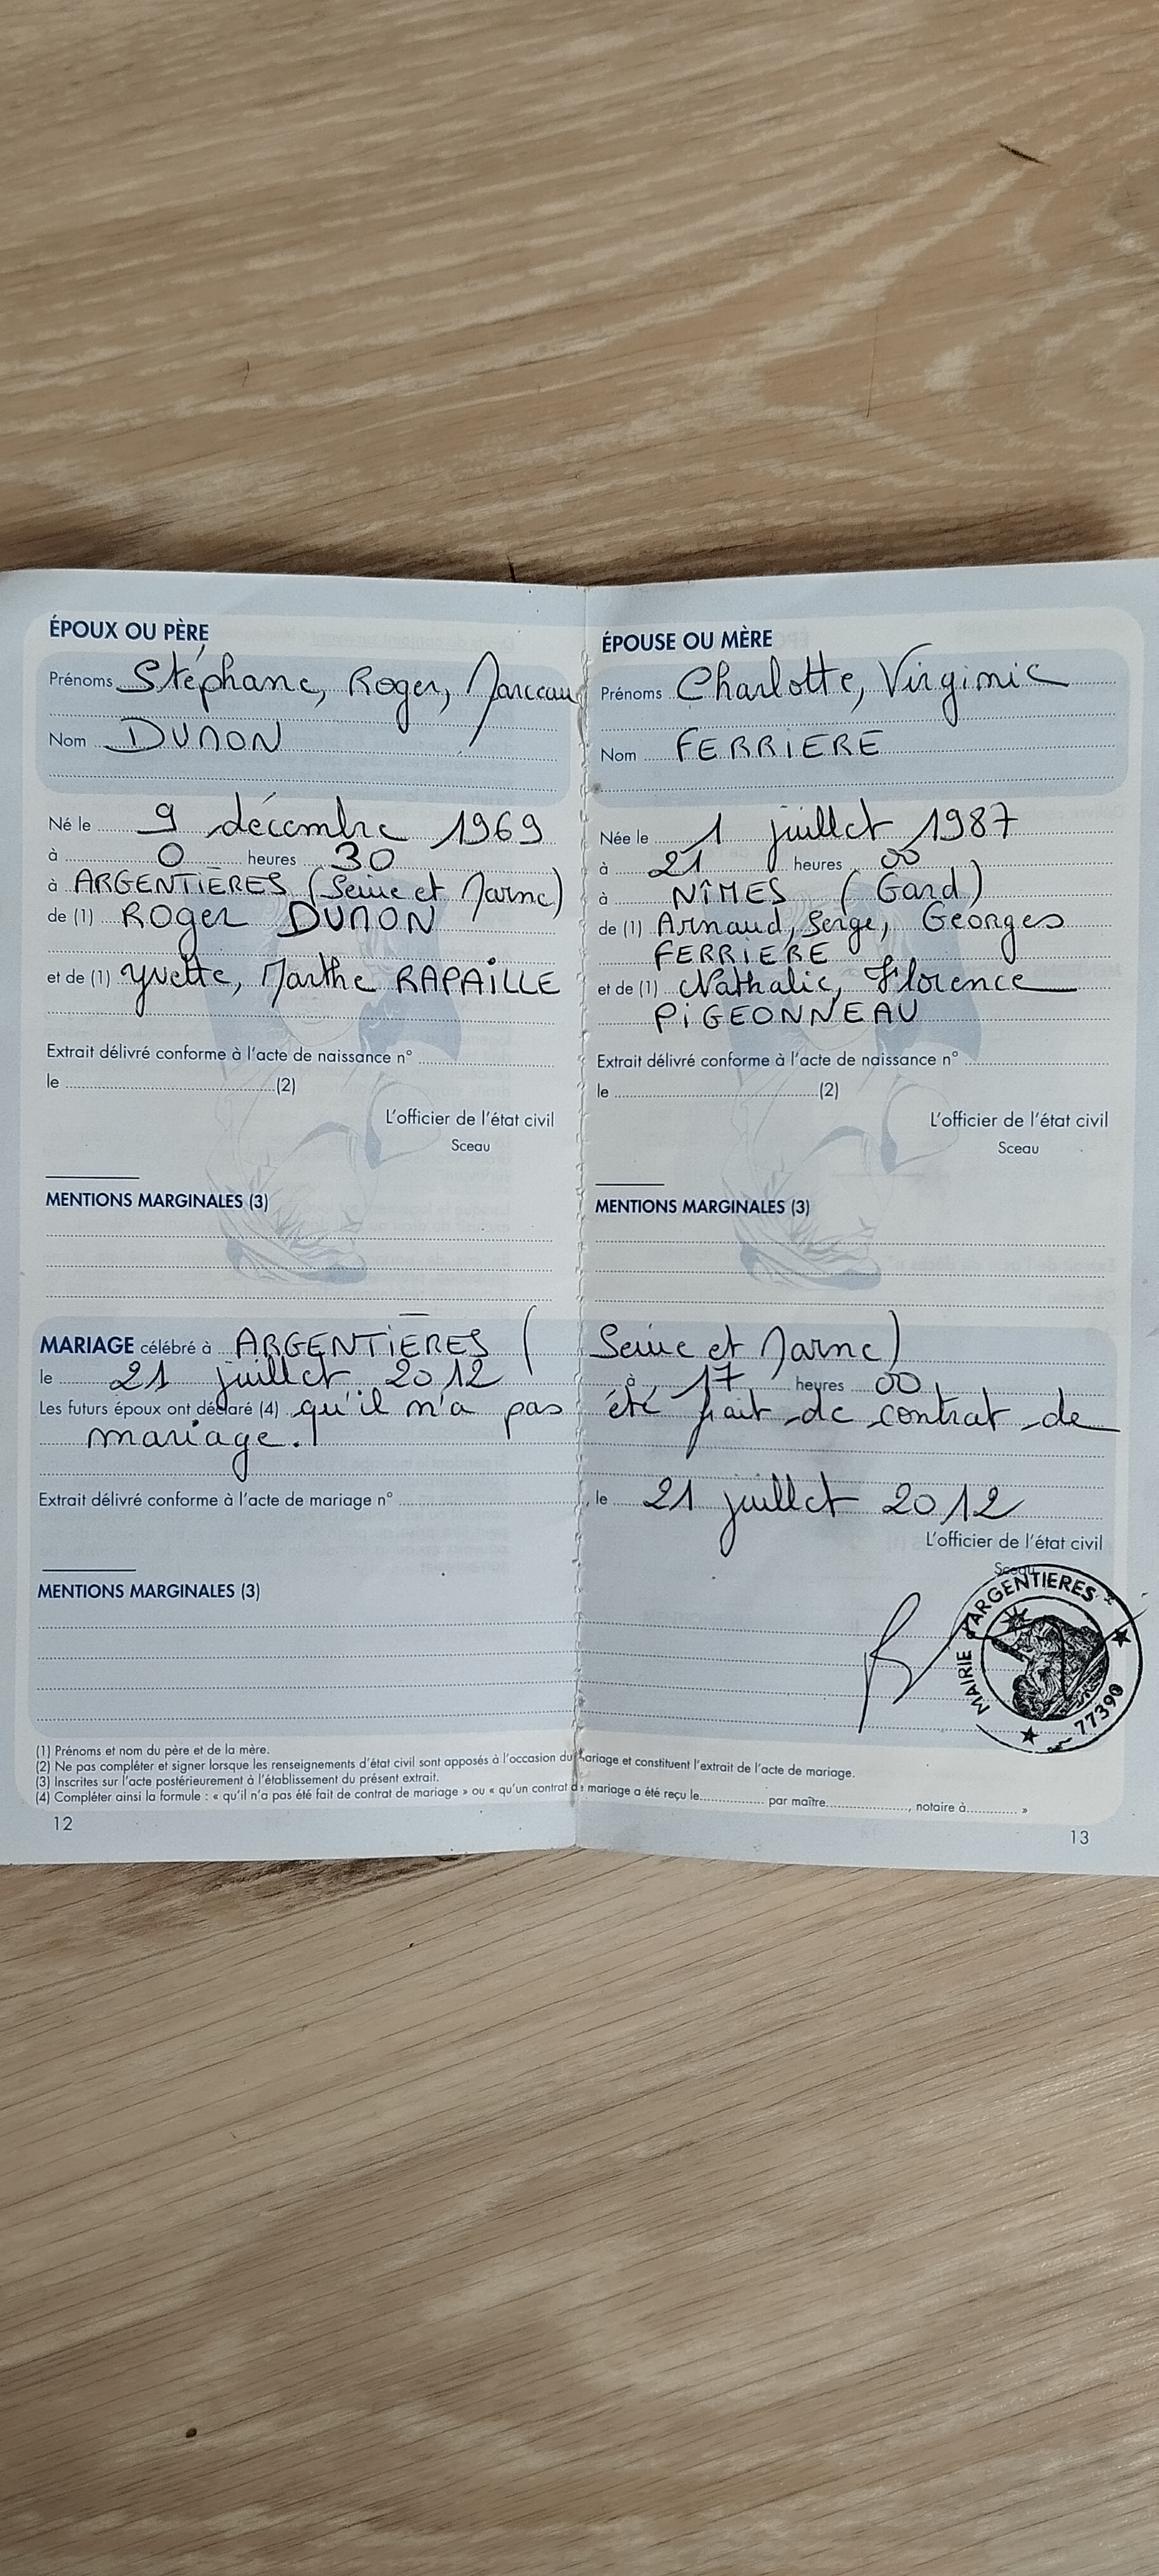 ÉPOUX OU PÈRE
Prénoms Stéphane, Roger, Marceau
Nom DUMON
Né le 9 décembre 1969
à 0 heures 30
à ARGENTIÈRES (Seine et Marne)
de (1) Roger DUMON
et de (1) Yvette, Marthe RAPAILLE
Extrait délivré conforme à l'acte de naissance n°
le (2)
L'officier de l'état civil
Sceau
MENTIONS MARGINALES (3)
ÉPOUSE OU MÈRE
Prénoms Charlotte, Virginie
Nom FERRIERE
Née le 1 juillet 1987
à 21 heures 00
à NÎMES (Gard)
de (1) Arnaud, Serge, Georges
FERRIERE
et de (1) Nathalie, Florence
PIGEONNEAU
Extrait délivré conforme à l'acte de naissance n°
le (2)
L'officier de l'état civil
Sceau
MENTIONS MARGINALES (3)
MARIAGE célébré à ARGENTIÈRES (Seine et Marne)
le 21 juillet 2012 à 17 heures 00
Les futurs époux ont déclaré (4) qu'il n'a pas été fait de contrat de
mariage.
Extrait délivré conforme à l'acte de mariage n° , le 21 juillet 2012
L'officier de l'état civil
Sceau
MAIRIE d'ARGENTIERES
77390
MENTIONS MARGINALES (3)
(1) Prénoms et nom du père et de la mère.
(2) Ne pas compléter et signer lorsque les renseignements d'état civil sont apposés à l'occasion du mariage et constituent l'extrait de l'acte de mariage.
(3) Inscrites sur l'acte postérieurement à l'établissement du présent extrait.
(4) Compléter ainsi la formule : « qu'il n'a pas été fait de contrat de mariage » ou « qu'un contrat de mariage a été reçu le............... par maître..................., notaire à............ »
12
13